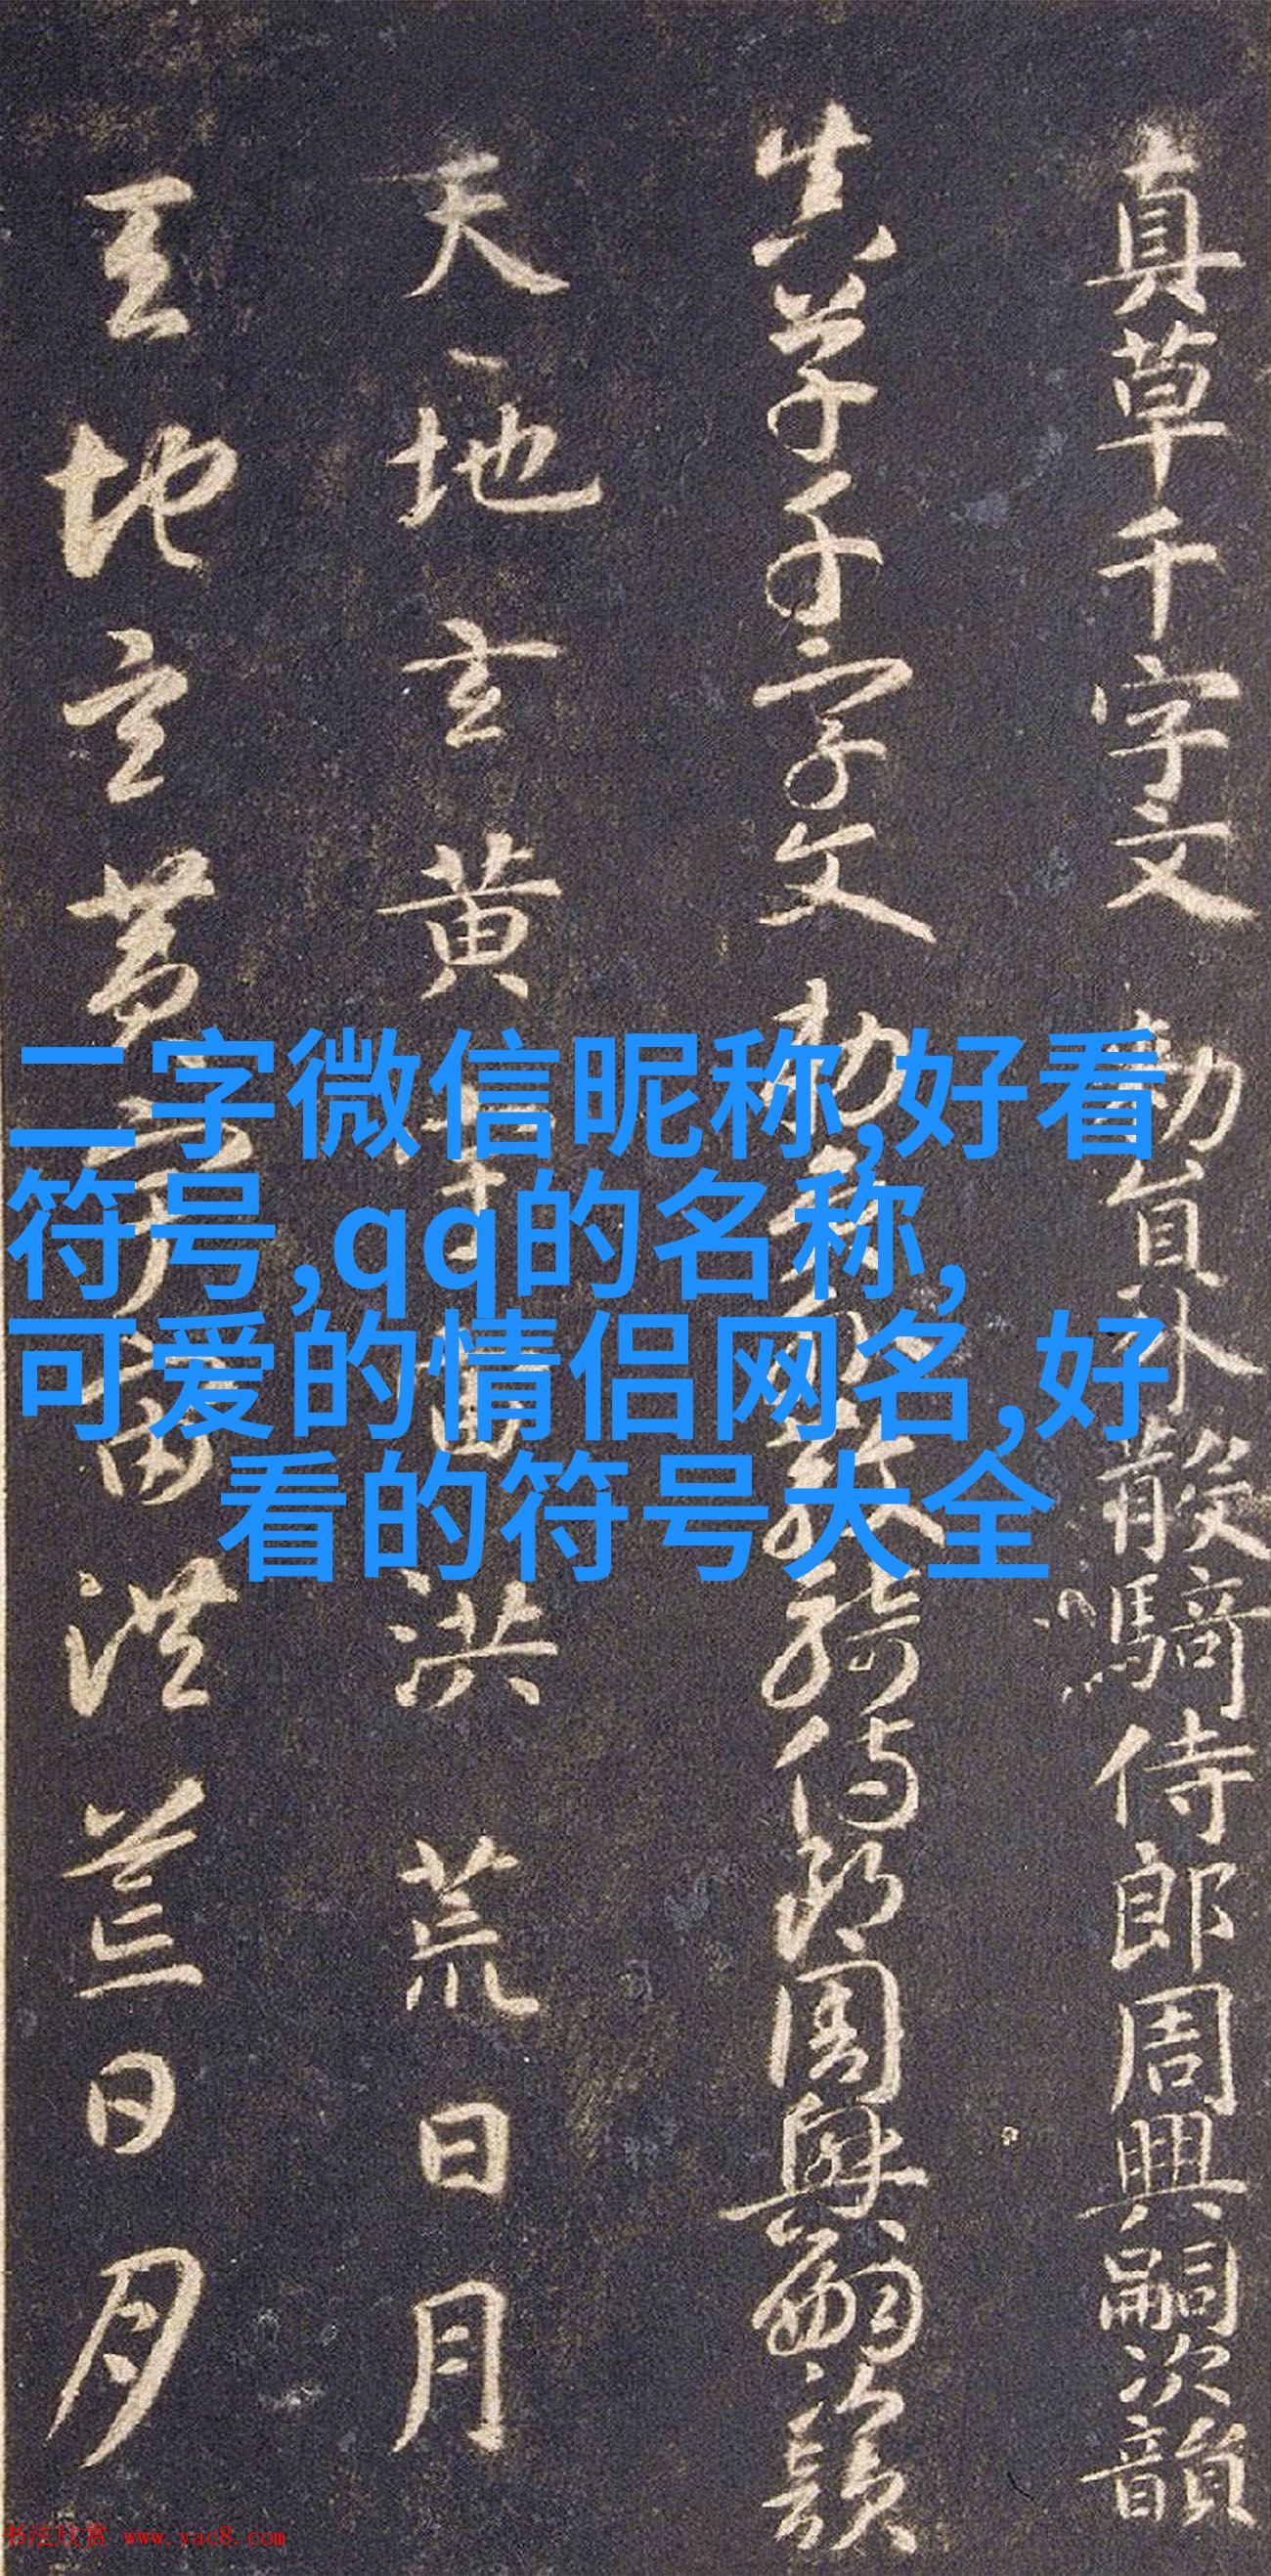 真草千字文 勅員外散騎侍郎周興嗣次韻
真草千字文 勅員外散騎侍郎周興嗣次韻
天地玄黃宇宙洪荒日月
天地玄黃宇宙洪荒日月
二字微信昵称,好看
符号,qq的名称,
可爱的情侣网名,好
看的符号大全
书法欣赏 www.yac8.com